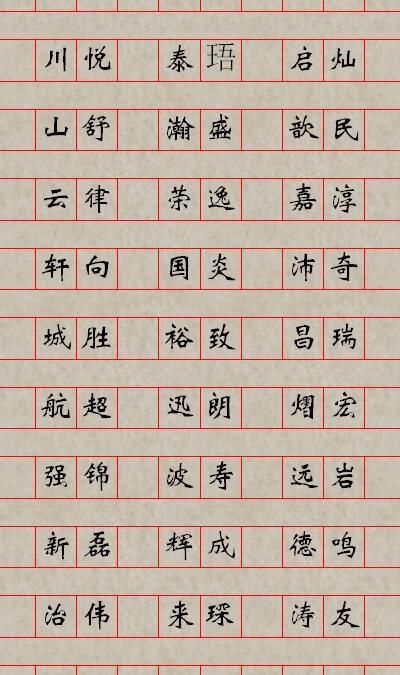 川悦 泰珸 启灿
山舒 瀚盛 歆民
云律 荣逸 嘉淳
轩向 国炎 沛奇
城胜 裕致 昌瑞
航超 迅朗 熠宏
强锦 波寿 远岩
新磊 辉成 德鸣
治伟 来琛 涛友